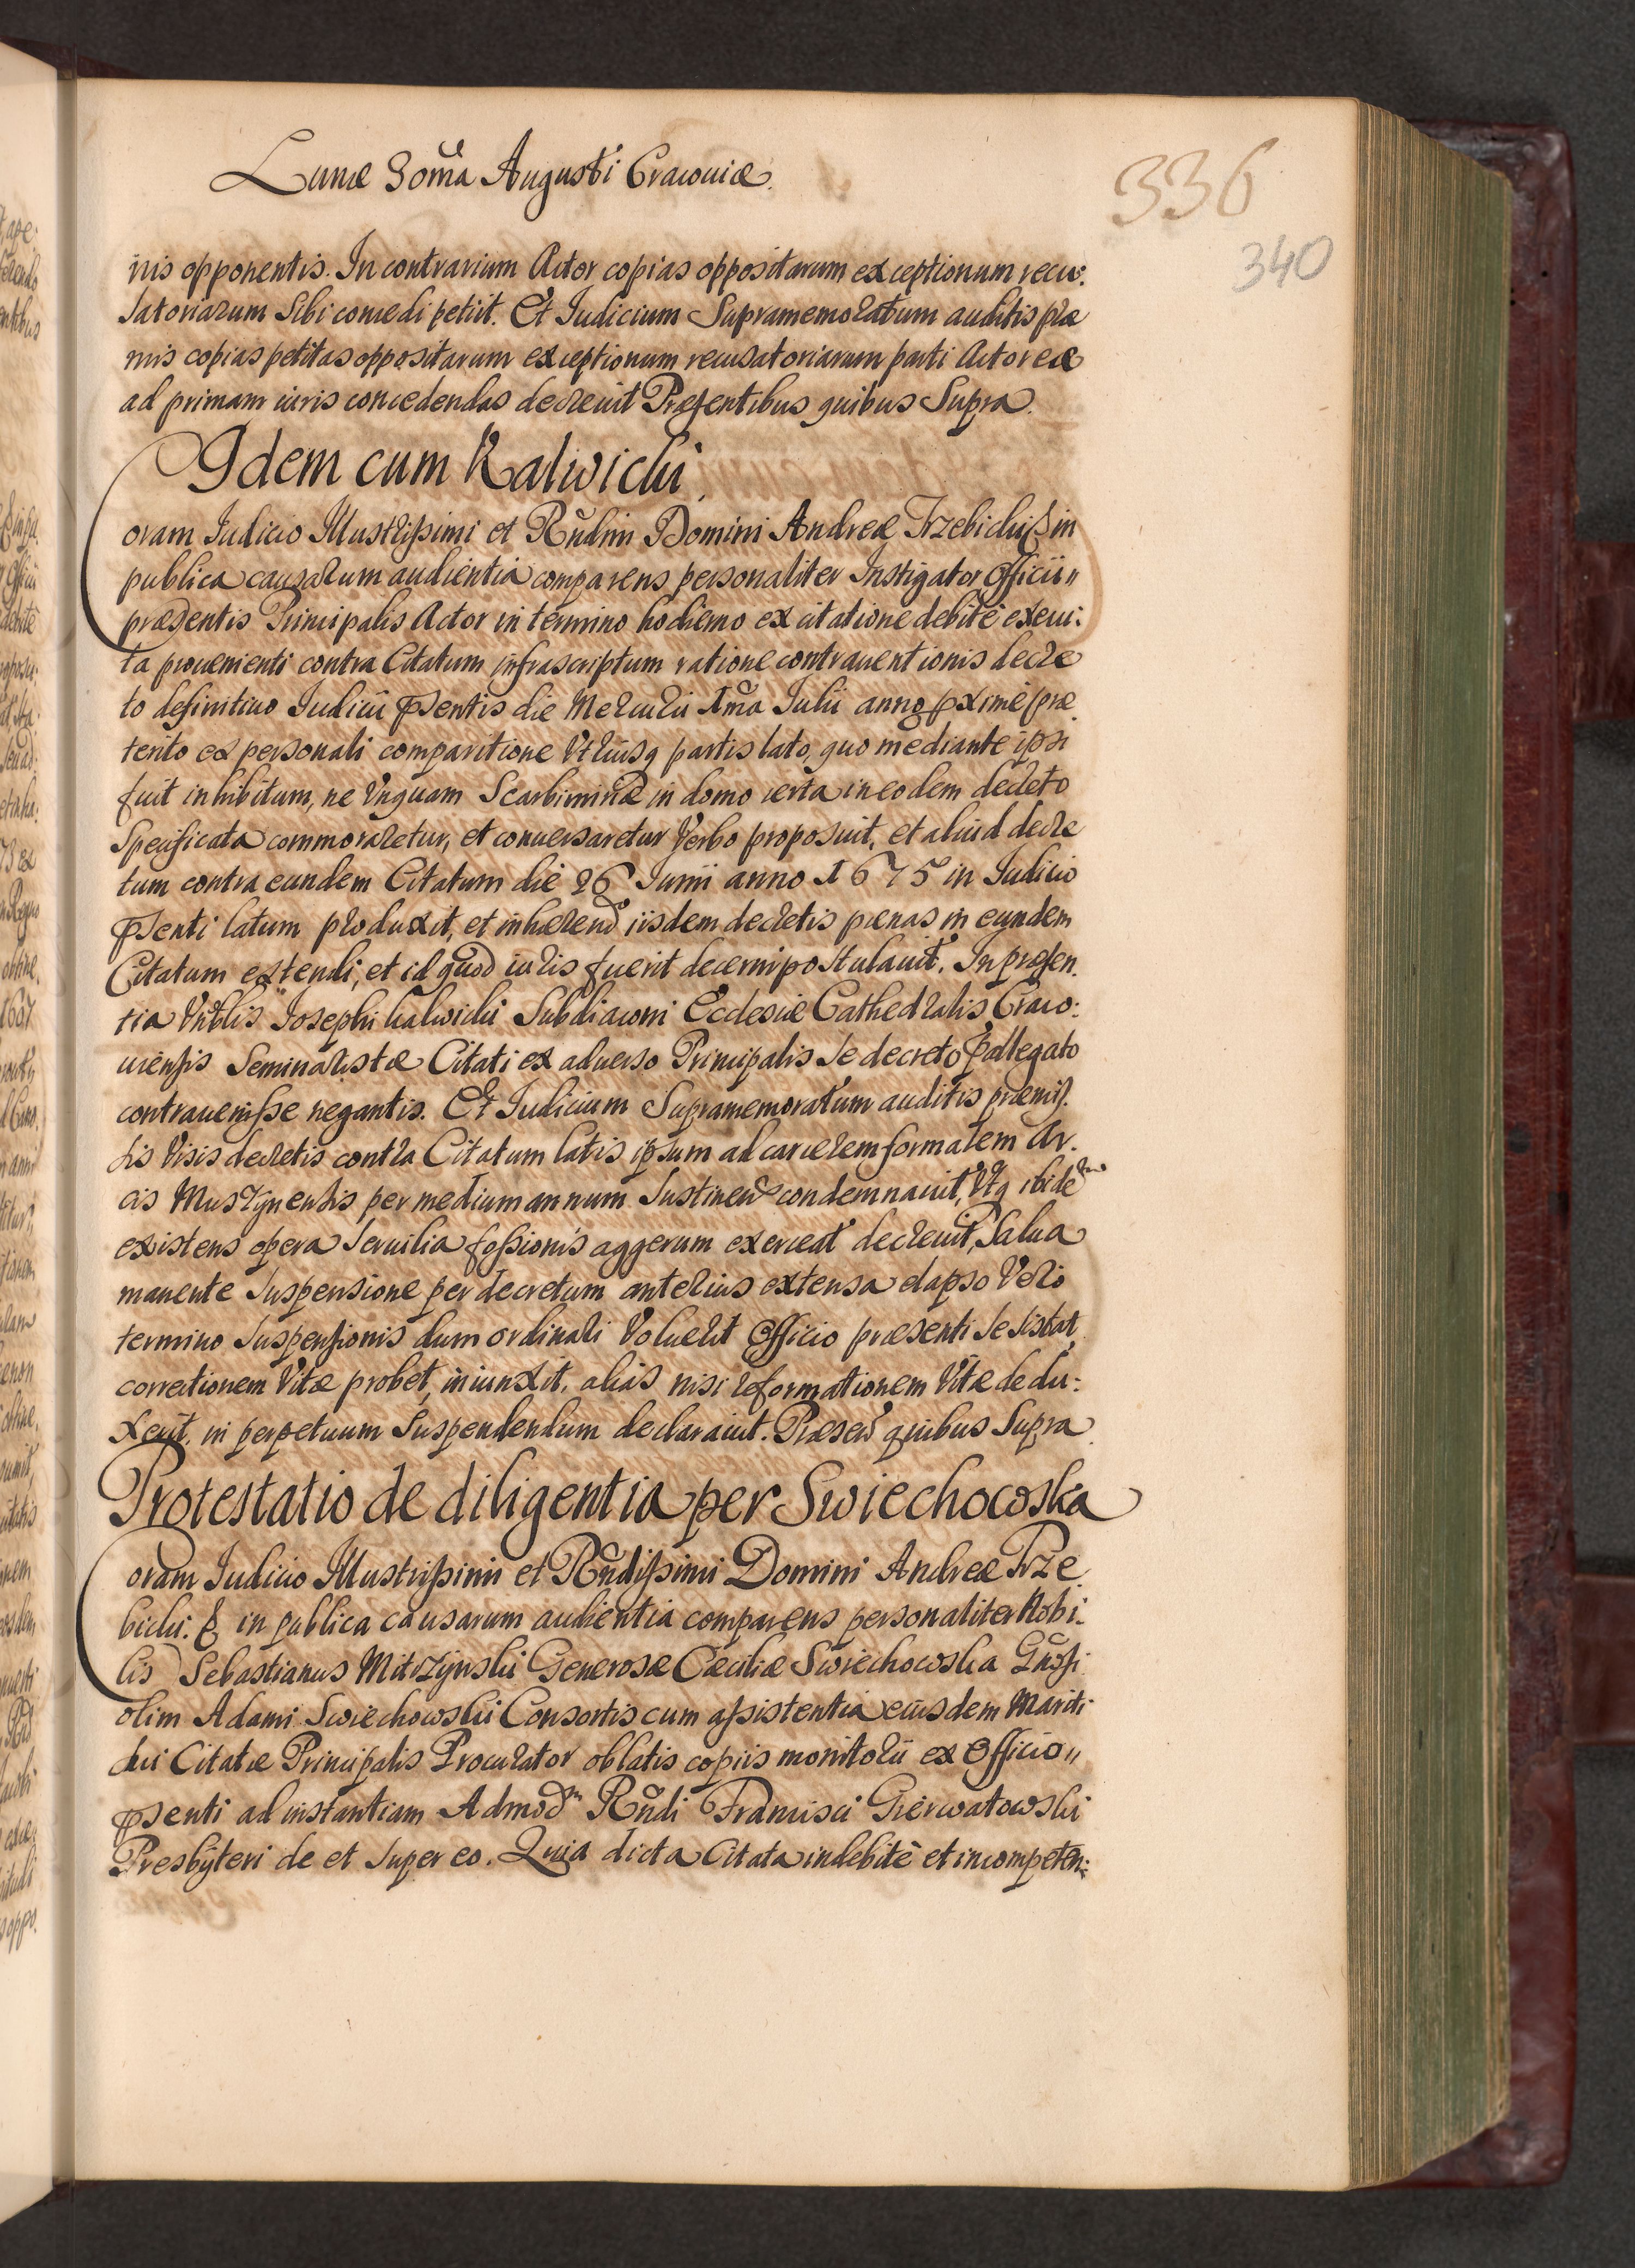 Lunæ 3oma Augusti Cracouiæ.
336
340
ris opponentis. In contrarium Actor copias oppositarum exceptionum recu:
satoriarum sibi concedi petiit. Et Iudicium Supramemoratum auditis præ
mis copias petitas oppositarum exceptionum recusatoriarum parti Actoreæ
ad primam iuris concedendas decreuit Præsentibus quibus Supra.
Idem cum Kalwicki
Coram Iudicio Illustrissimi et Rndmi Domini Andreæ Trzebicki & in
publica causarum audientia comparens personaliter Instigator Officii
præsentis Principalis Actor in termino hodierno ex citatione debitè execu:
ta prouenienti contra Citatum infrascriptum ratione contrauentionis decre
to definitiuo Iudicii pñsentis die Mercurii 1ma Iulii anno pximè præ
terito ex personali comparitione Vtriusq partis lato, quo mediante ipsi
fuit inhibitum, ne Vnquam Scarbimiriæ in domo certa in eodem decreto
Specificata commoraretur, et conuersaretur Verbo proposuit, et aliud decre
tum contra eundem Citatum die 26 Iunii anno 1675 in Iudicio
pñsenti latum produxit, et inhærendo iisdem decretis pænas in eundem
Citatum extendi, et id quod iuris fuerit decerni postulauit. In præsen
tia Vnblis Iosephi Kalwicki Subdiaconi Ecclesiæ Cathedralis Craco:
uiensis Seminaristæ Citati ex aduerso Principalis se decreto pallegato
contrauenisse negantis. Et Iudicium Supramemoratum auditis præmis
sis Visis decretis contra Citatum latis ipsum ad carcerem formalem Ar.
cis Muszynensis per medium annum sustinend condemnauit, Vtq ibidem
existens opera seruilia fossionis aggerum exerceat decreuit, Salua
manente suspensione per decretum anterius extensa elapso Vero
termino suspensionis dum ordinari Voluerit Officio præsenti se sistat,
correctionem Vitæ probet, iniunxit, aliàs nisi reformationem Vitæ dedu:
xerit, in perpetuum Suspendendum declarauit. Præsen quibus Supra
Protestatio de diligentia per Swiechowska
Coram Iudicio Illustrissimi et Rndissimi Domini Andreæ Trze
bicki. & in publica causarum audientia comparens personaliter Nobi:
lis Sebastianus Mitczynski Generosæ Cæciliæ Swiechowska Gnosi
olim Adami Swiechowski Consortis cum assistentia eiusdem Mariti
sui Citatæ Principalis Procurator oblatis copiis monitorii ex Officio
pñsenti ad instantiam Admodm Rndi Francisci Gierwatowski
Presbyteri de et super eo. Quia dicta Citata indebitè et incompeten: